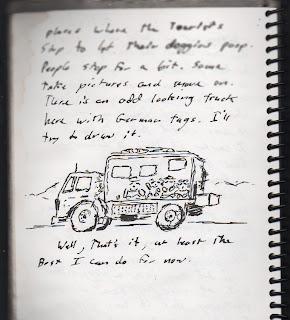 places where the Tourists
Stop to let Their doggies poop.
People stop for a bit. Some
Take pictures and move on.
There is an odd looking truck
here with German tags. I'll
try to draw it.
Well, That's it, at least the
Best I can do for now.